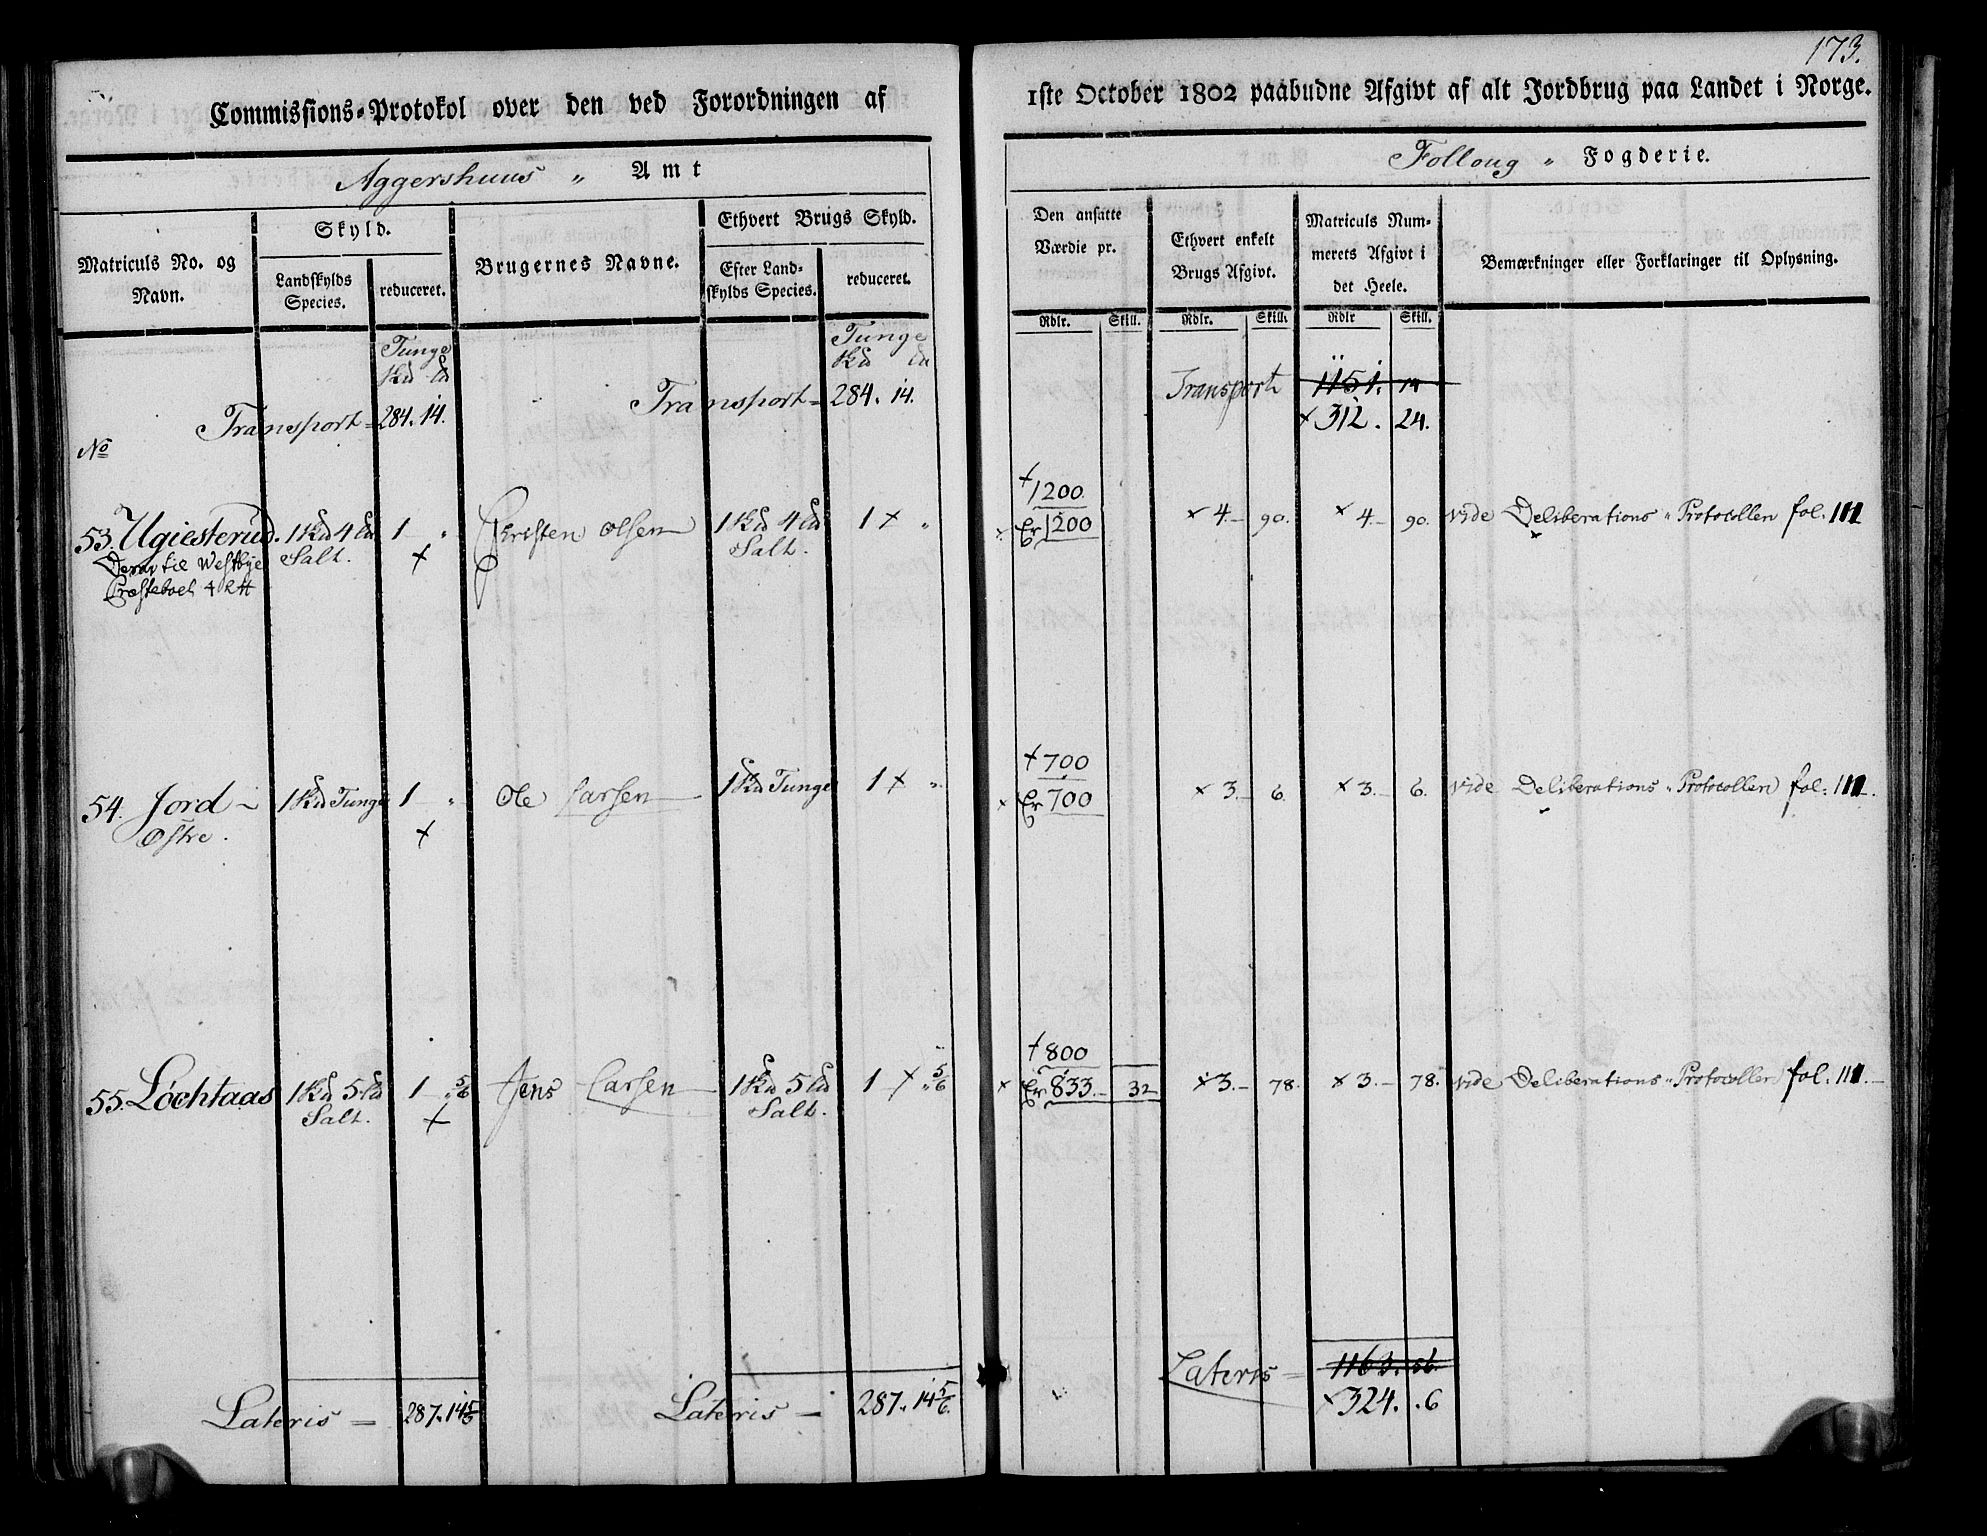 173.
Commissions-Protokol over den ved Forordningen af
1ste October 1802 paabudne Afgivt af alt Jordbrug paa Landet i Norge.
Aggershuus „ Amt
Folloug „ Fogderie.
Matriculs No. og Navn.
Skyld.
Landskylds Species.
reduceret.
Brugernes Navne.
Ethvert Brugs Skyld.
Efter Landskylds Species.
reduceret.
Den ansatte Værdie pr.
Ethvert enkelt Brugs Afgivt.
Matriculs Nummerets Afgivt i det Heele.
Bemærkninger eller Forklaringer til Oplysning.
Rdlr. Skill. Rdlr. Skill. Rdlr Skill.
Tunge
Tunge
Transport = 284. 14.
Transport = 284. 14.
Transport 1151. 14
× 312. 24.
No
+ 1200
53. Ugiesterud. 1 4 Salt. 1 „ + Christen Olsen 1 4 Salt. 1 + „ × Er 1200 × 4. – 90. × 4. – 90. vide Deliberations „ Protocollen fol. 111
til Westbye
4
+ 700
54. Jord – Østre. 1 Tunge 1 „ + Ole Larsen 1 Tunge 1 + „ × Er 700 × 3. – 6. × 3. – 6. vide Deliberations „ Protocollen fol: 111.
+ 800
55. Løchtaas 1 5 Salt. 1 „ 5/6 + Jens Larsen 1 5 Salt. 1 + „ 5/6 × Er 833. – 32 × 3. – 78. × 3. – 78. vide Deliberations „ Protocollen fol. 111. –
Lateris = 287. 14 5/6
Lateris – 287. 14 5/6.
Lateris = 1163. 56.
× 324. . 6